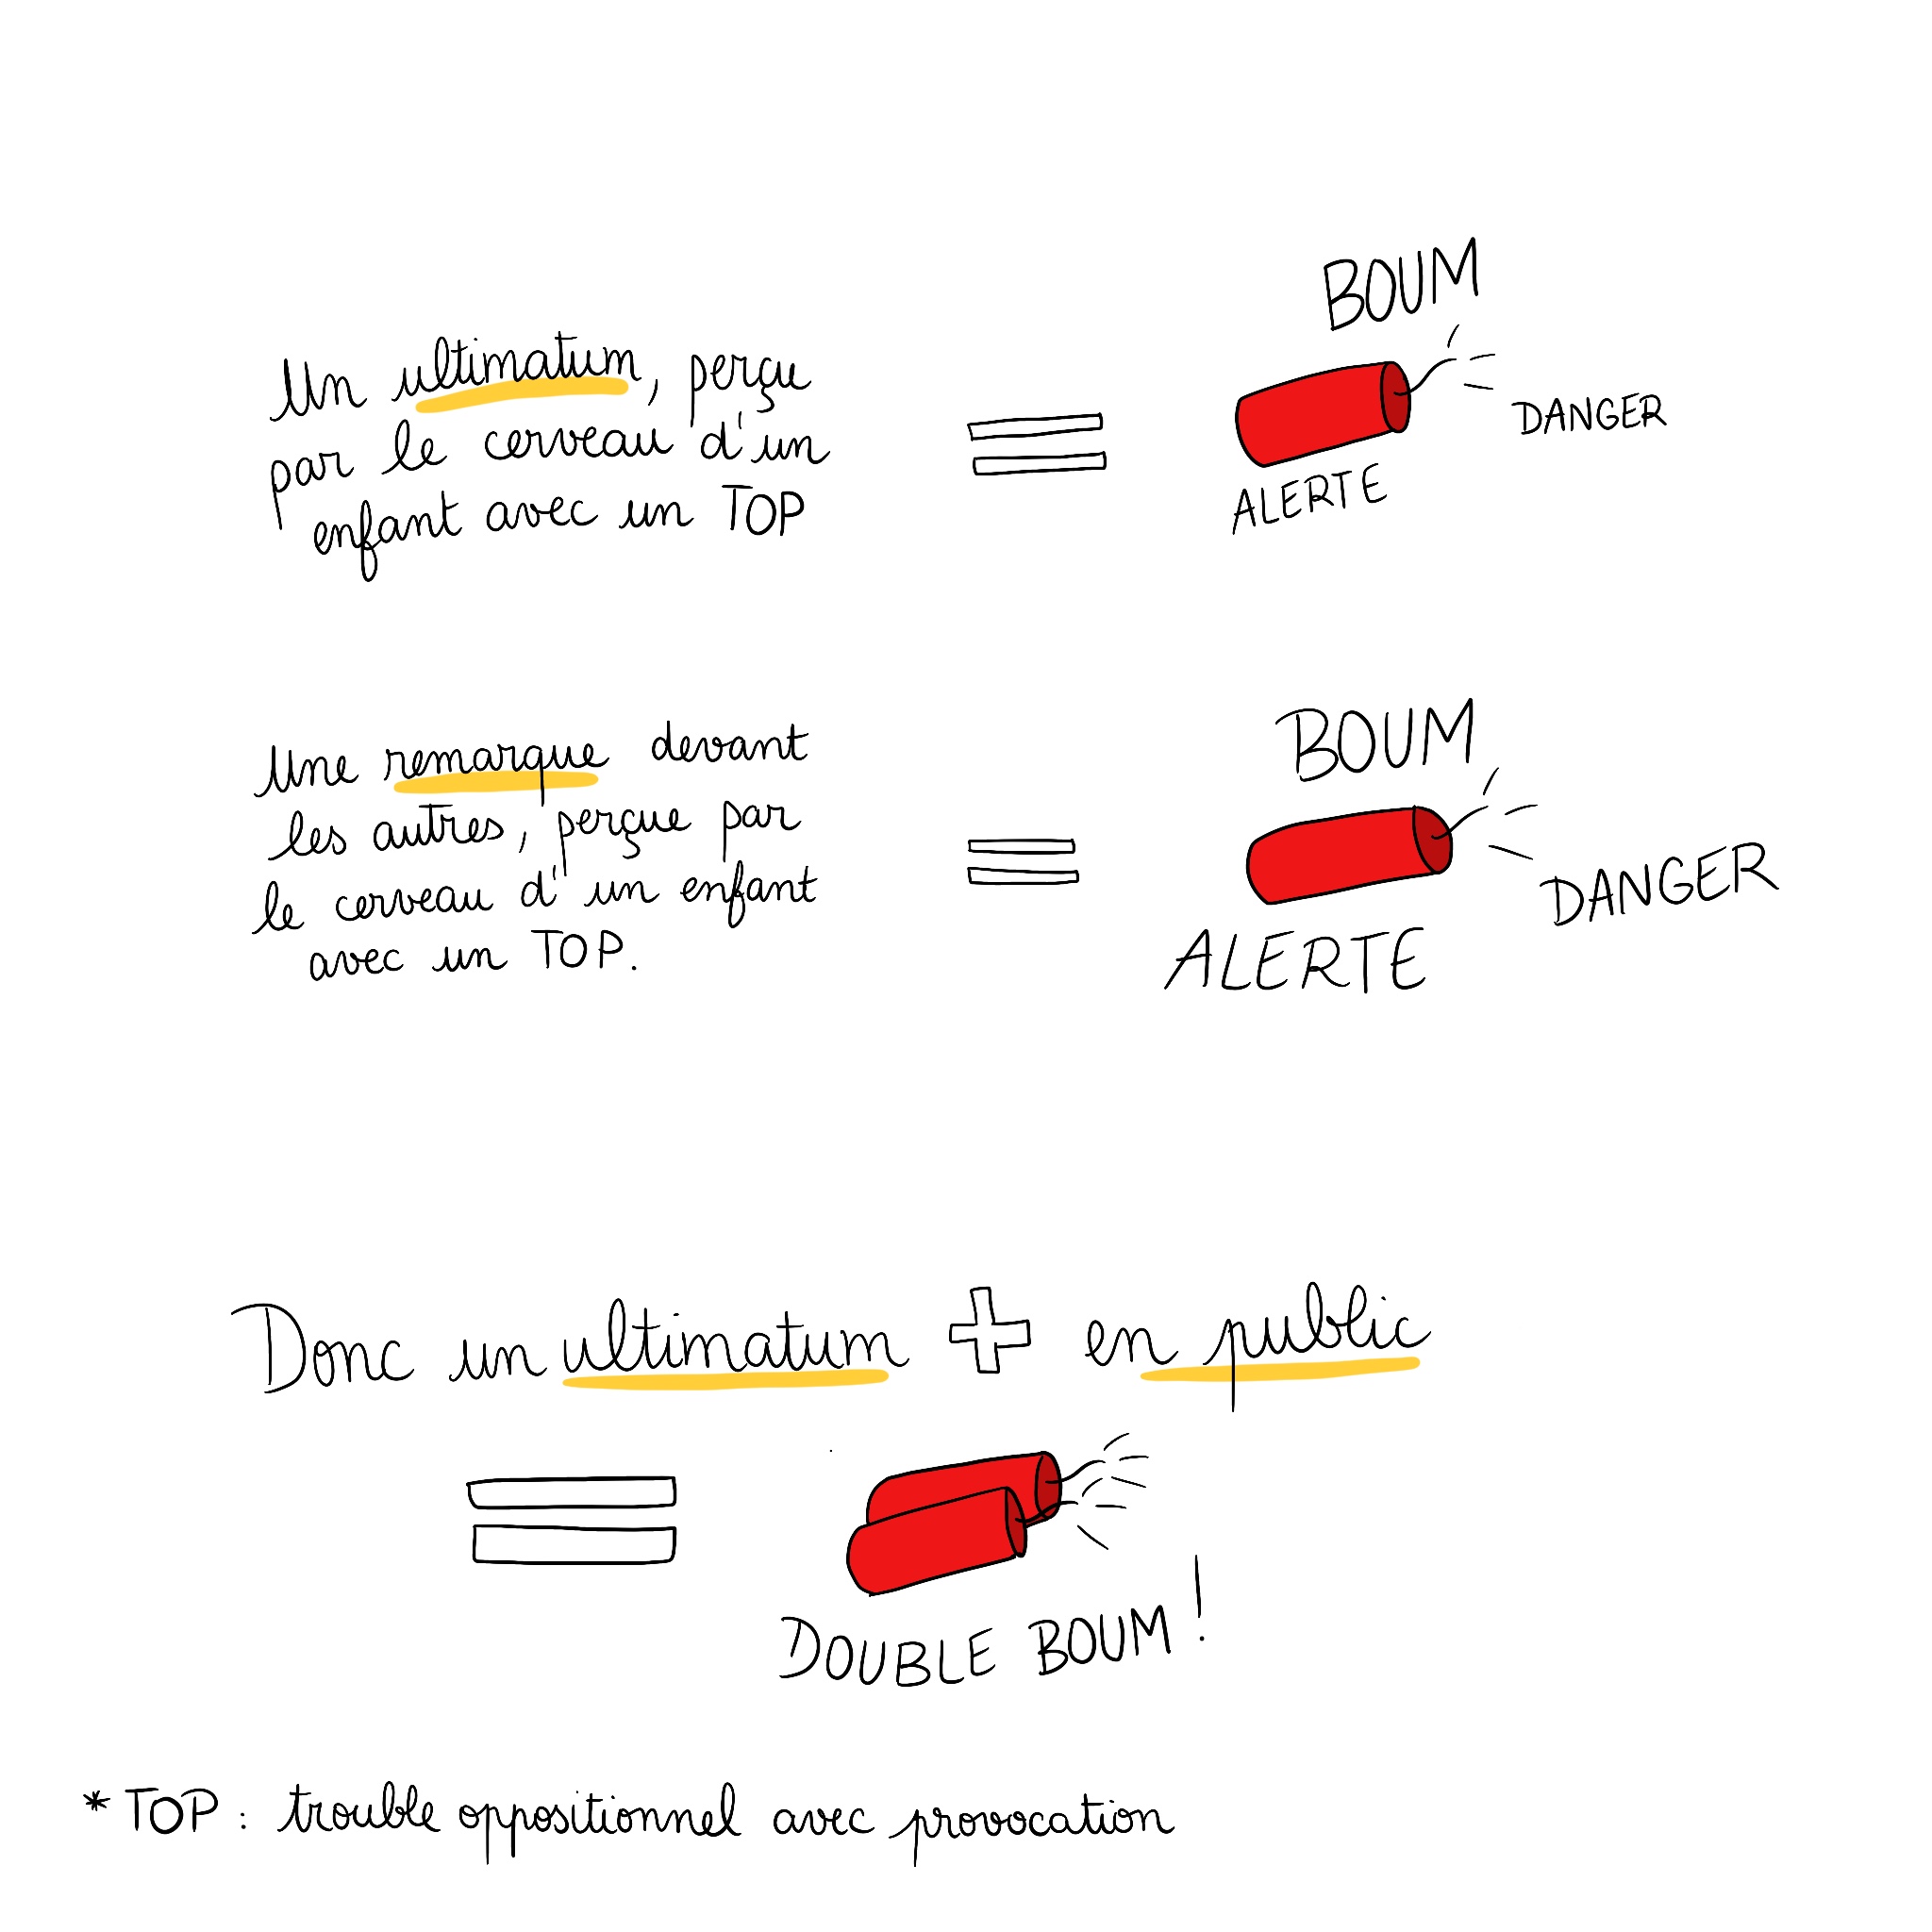 Un ultimatum, perçu
par le cerveau d'un
enfant avec un TOP
BOUM
DANGER
ALERTE
Une remarque devant
les autres, perçue par
le cerveau d'un enfant
avec un TOP.
BOUM
DANGER
ALERTE
Donc un ultimatum + en public
DOUBLE BOUM!
* TOP : trouble oppositionnel avec provocation